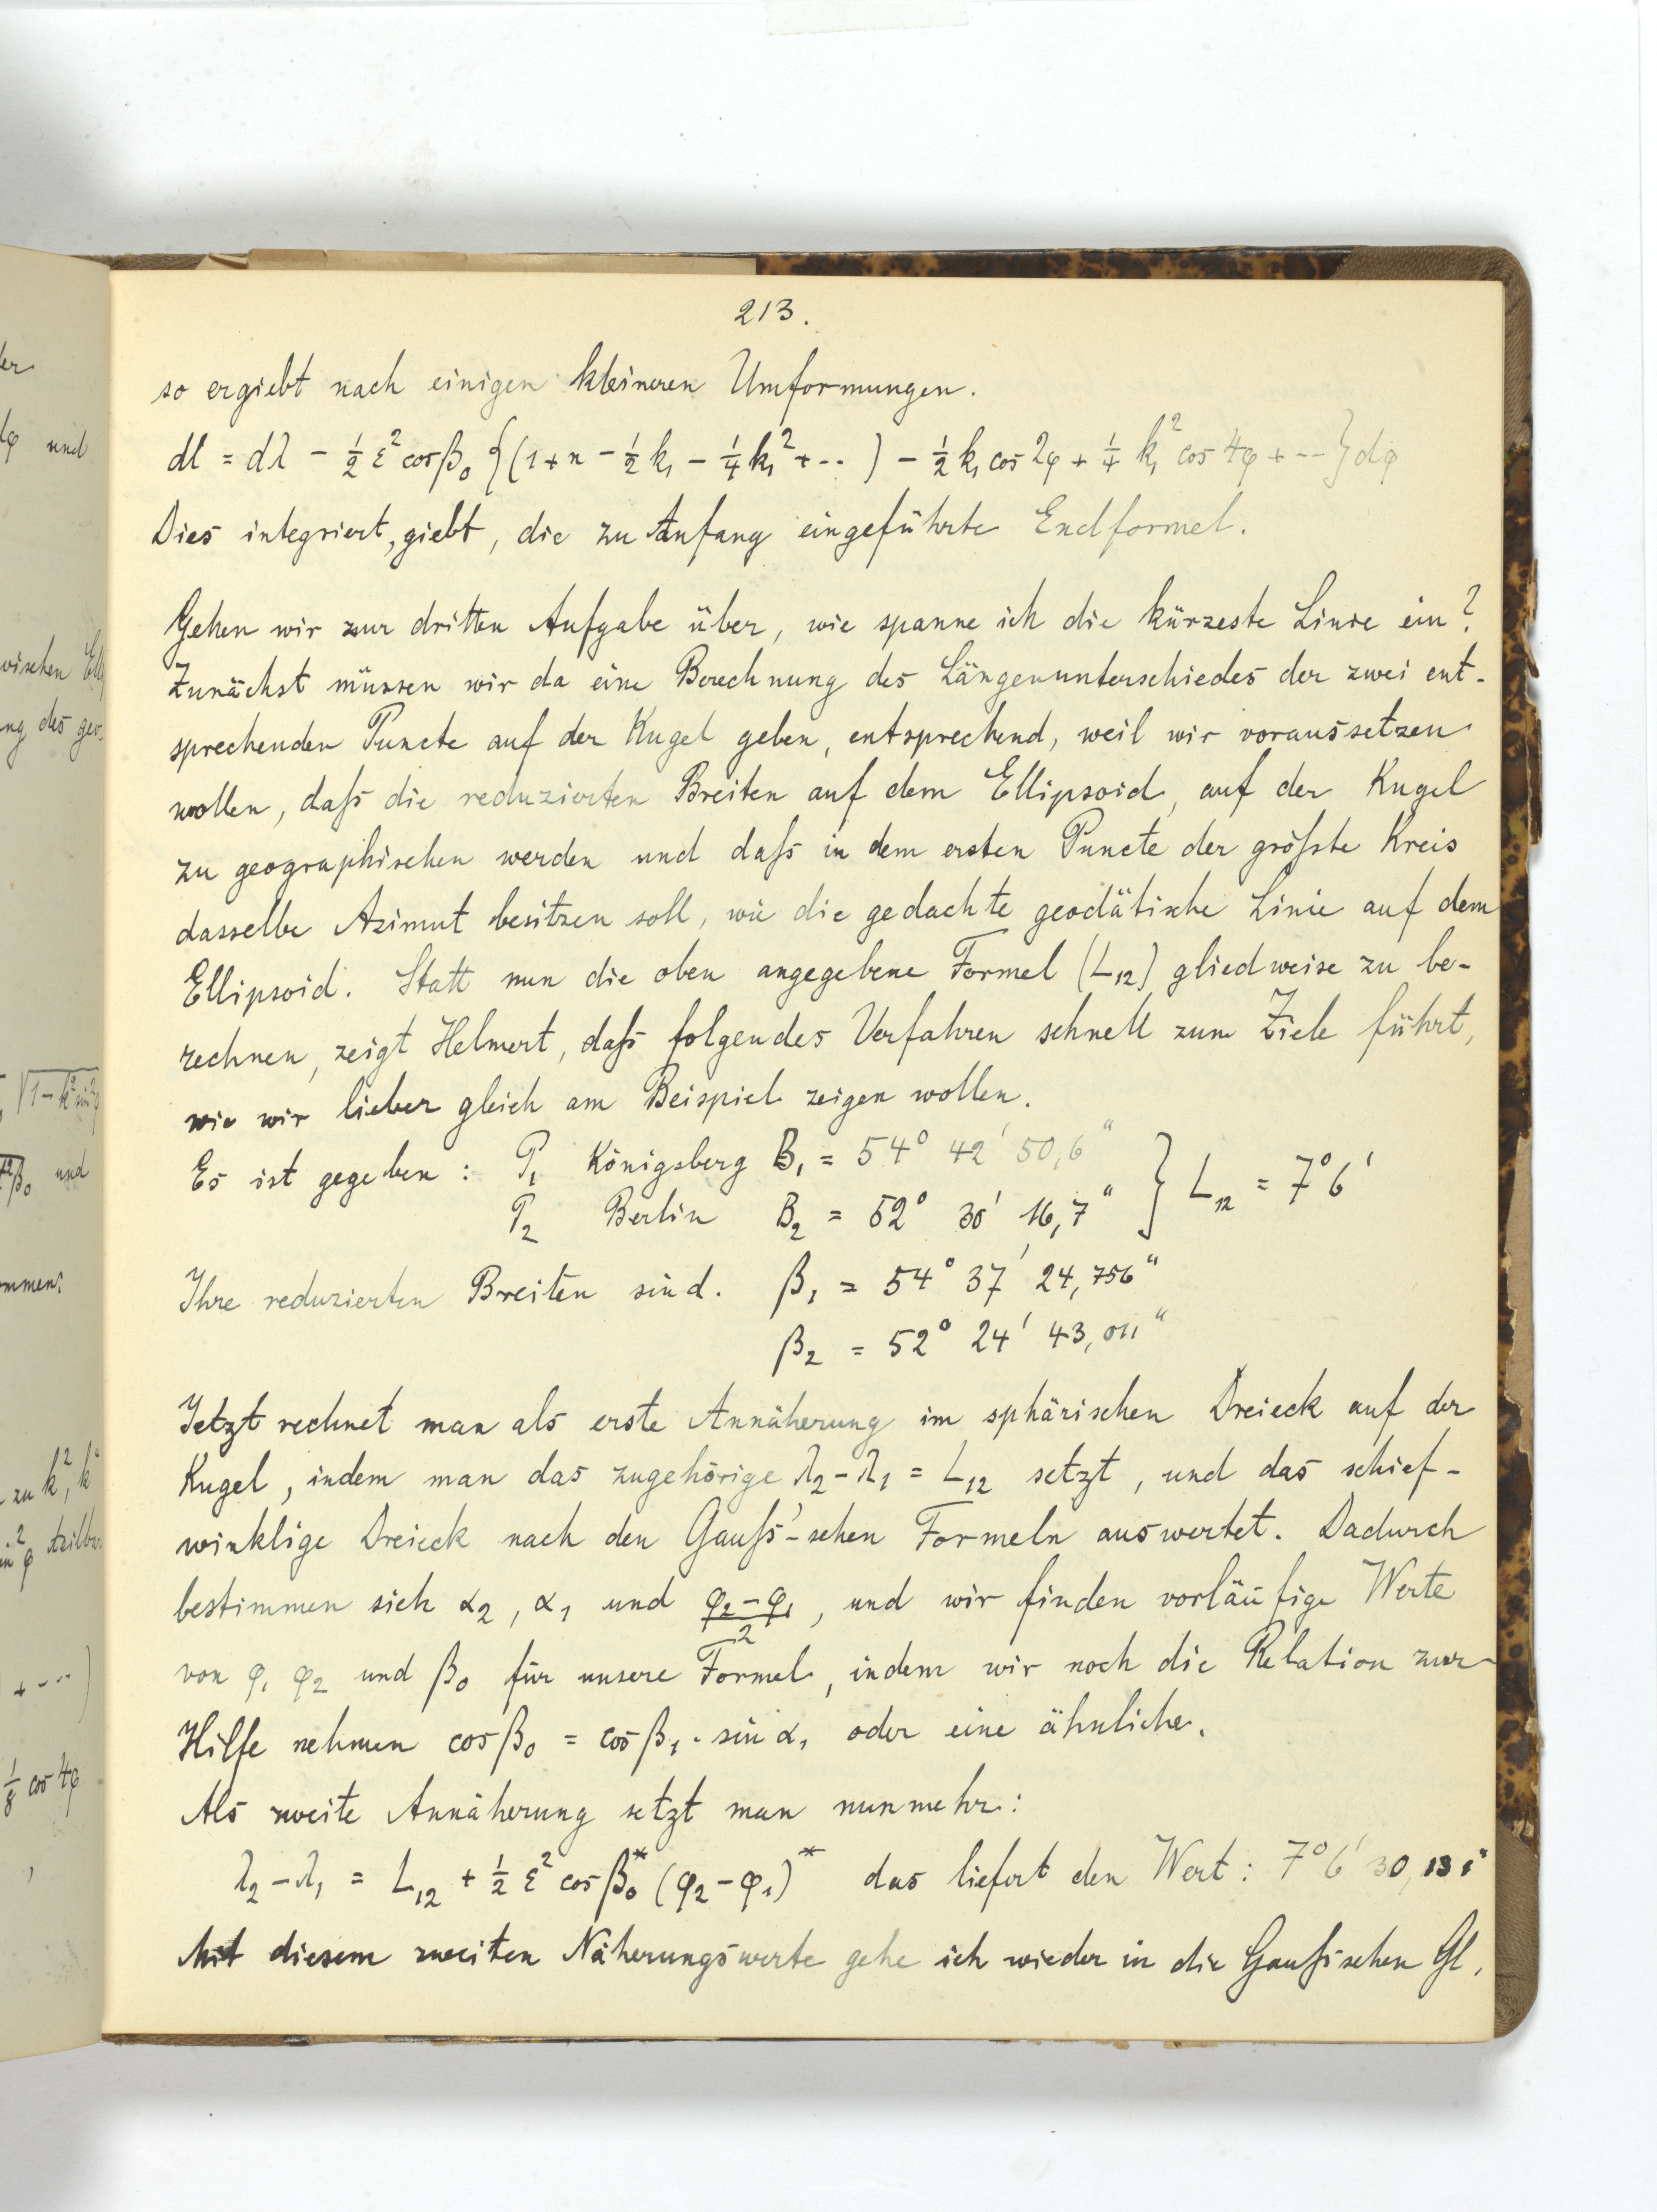 213.
so ergiebt nach einigen kleineren Umformungen.
dl = dλ - ½ ε² cos β₀ {(1 + n - ½ k₁ - ¼ k₁² + ..) - ½ k₁ cos 2φ + ¼ k₁² cos 4φ + ...} dφ
Dies integriert, giebt, die zu Anfang eingeführte Endformel.
Gehen wir zur dritten Aufgabe über, wie spanne ich die kürzeste Linie ein?
Zunächst müssen wir da eine Berechnung des Längenunterschiedes der zwei ent-
sprechenden Puncte auf der Kugel geben, entsprechend, weil wir voraussetzen
wollen, daſs die reduzierten Breiten auf dem Ellipsoid, auf der Kugel
zu geographischen werden und daſs in dem ersten Puncte der gröſste Kreis
dasselbe Azimut besitzen soll, wie die gedachte geodätische Linie auf dem
Ellipsoid. Statt nun die oben angegebene Formel (L₁₂) gliedweise zu be-
rechnen, zeigt Helmert, daſs folgendes Verfahren schnell zum Ziele führt,
wie wir lieber gleich am Beispiel zeigen wollen.
Es ist gegeben : P₁ Königsberg B₁ = 54° 42' 50,6" } L₁₂ = 7° 6'
P₂ Berlin B₂ = 52° 30' 16,7"
Ihre reduzierten Breiten sind. β₁ = 54° 37' 24,756"
β₂ = 52° 24' 43,011"
Jetzt rechnet man als erste Annäherung im sphärischen Dreieck auf der
Kugel, indem man das zugehörige λ₂ - λ₁ = L₁₂ setzt, und das schief-
winklige Dreieck nach den Gauſs'-schen Formeln auswertet. Dadurch
bestimmen sich α₂, α₁ und (φ₂ - φ₁)/2, und wir finden vorläufige Werte
von φ₁ φ₂ und β₀ für unsere Formel, indem wir noch die Relation zur
Hilfe nehmen cos β₀ = cos β₁ · sin α₁ oder eine ähnliche.
Als zweite Annäherung setzt man nunmehr:
λ₂ - λ₁ = L₁₂ + ½ ε² cos β₀* (φ₂ - φ₁)* das liefert den Wert: 7° 6' 30,131"
Mit diesem zweiten Näherungswerte gehe ich wieder in die Gauſsschen Gl.